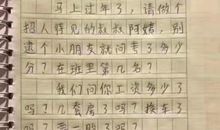 马上过年了，请做个
招人待见的叔叔阿姨，别
逮个小朋友就问考了多少
分？在班里第几名？
我们问你工资多少了
吗？几套房了吗？换车了
吗？要二胎了吗？